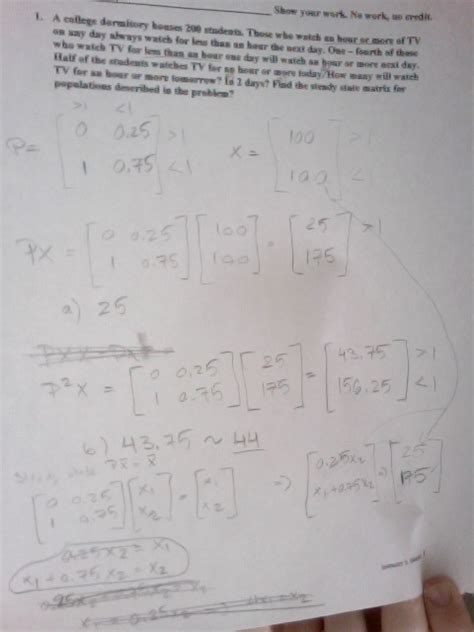 Show your work. No work, no credit.
1. A college dormitory houses 200 students. Those who watch an hour or more of TV
on any day always watch for less than an hour the next day. One – fourth of those
who watch TV for less than an hour one day will watch an hour or more next day.
Half of the students watches TV for an hour or more today. How many will watch
TV for an hour or more tomorrow? In 2 days? Find the steady state matrix for
populations described in the problem?
>1 <1
P= [ 0 0.25 ] >1 X = [ 100 ] >1
[ 1 0.75 ] <1 [ 100 ] <1
PX = [ 0 0.25 ] [ 100 ] = [ 25 ] >1
[ 1 0.75 ] [ 100 ] [ 175 ]
a) 25
P²X = [ 0 0.25 ] [ 25 ] = [ 43.75 ] >1
[ 1 0.75 ] [ 175 ] [ 156.25 ] <1
b) 43.75 ~ 44
Steady state PX̄ = X̄
[ 0 0.25 ] [ x₁ ] = [ x₁ ] => [ 0.25x₂ ] = [ 25 ]
[ 1 0.75 ] [ x₂ ] [ x₂ ] [ x₁+0.75x₂ ] [ 175 ]
0.25x₂ = x₁
x₁ + 0.75 x₂ = x₂